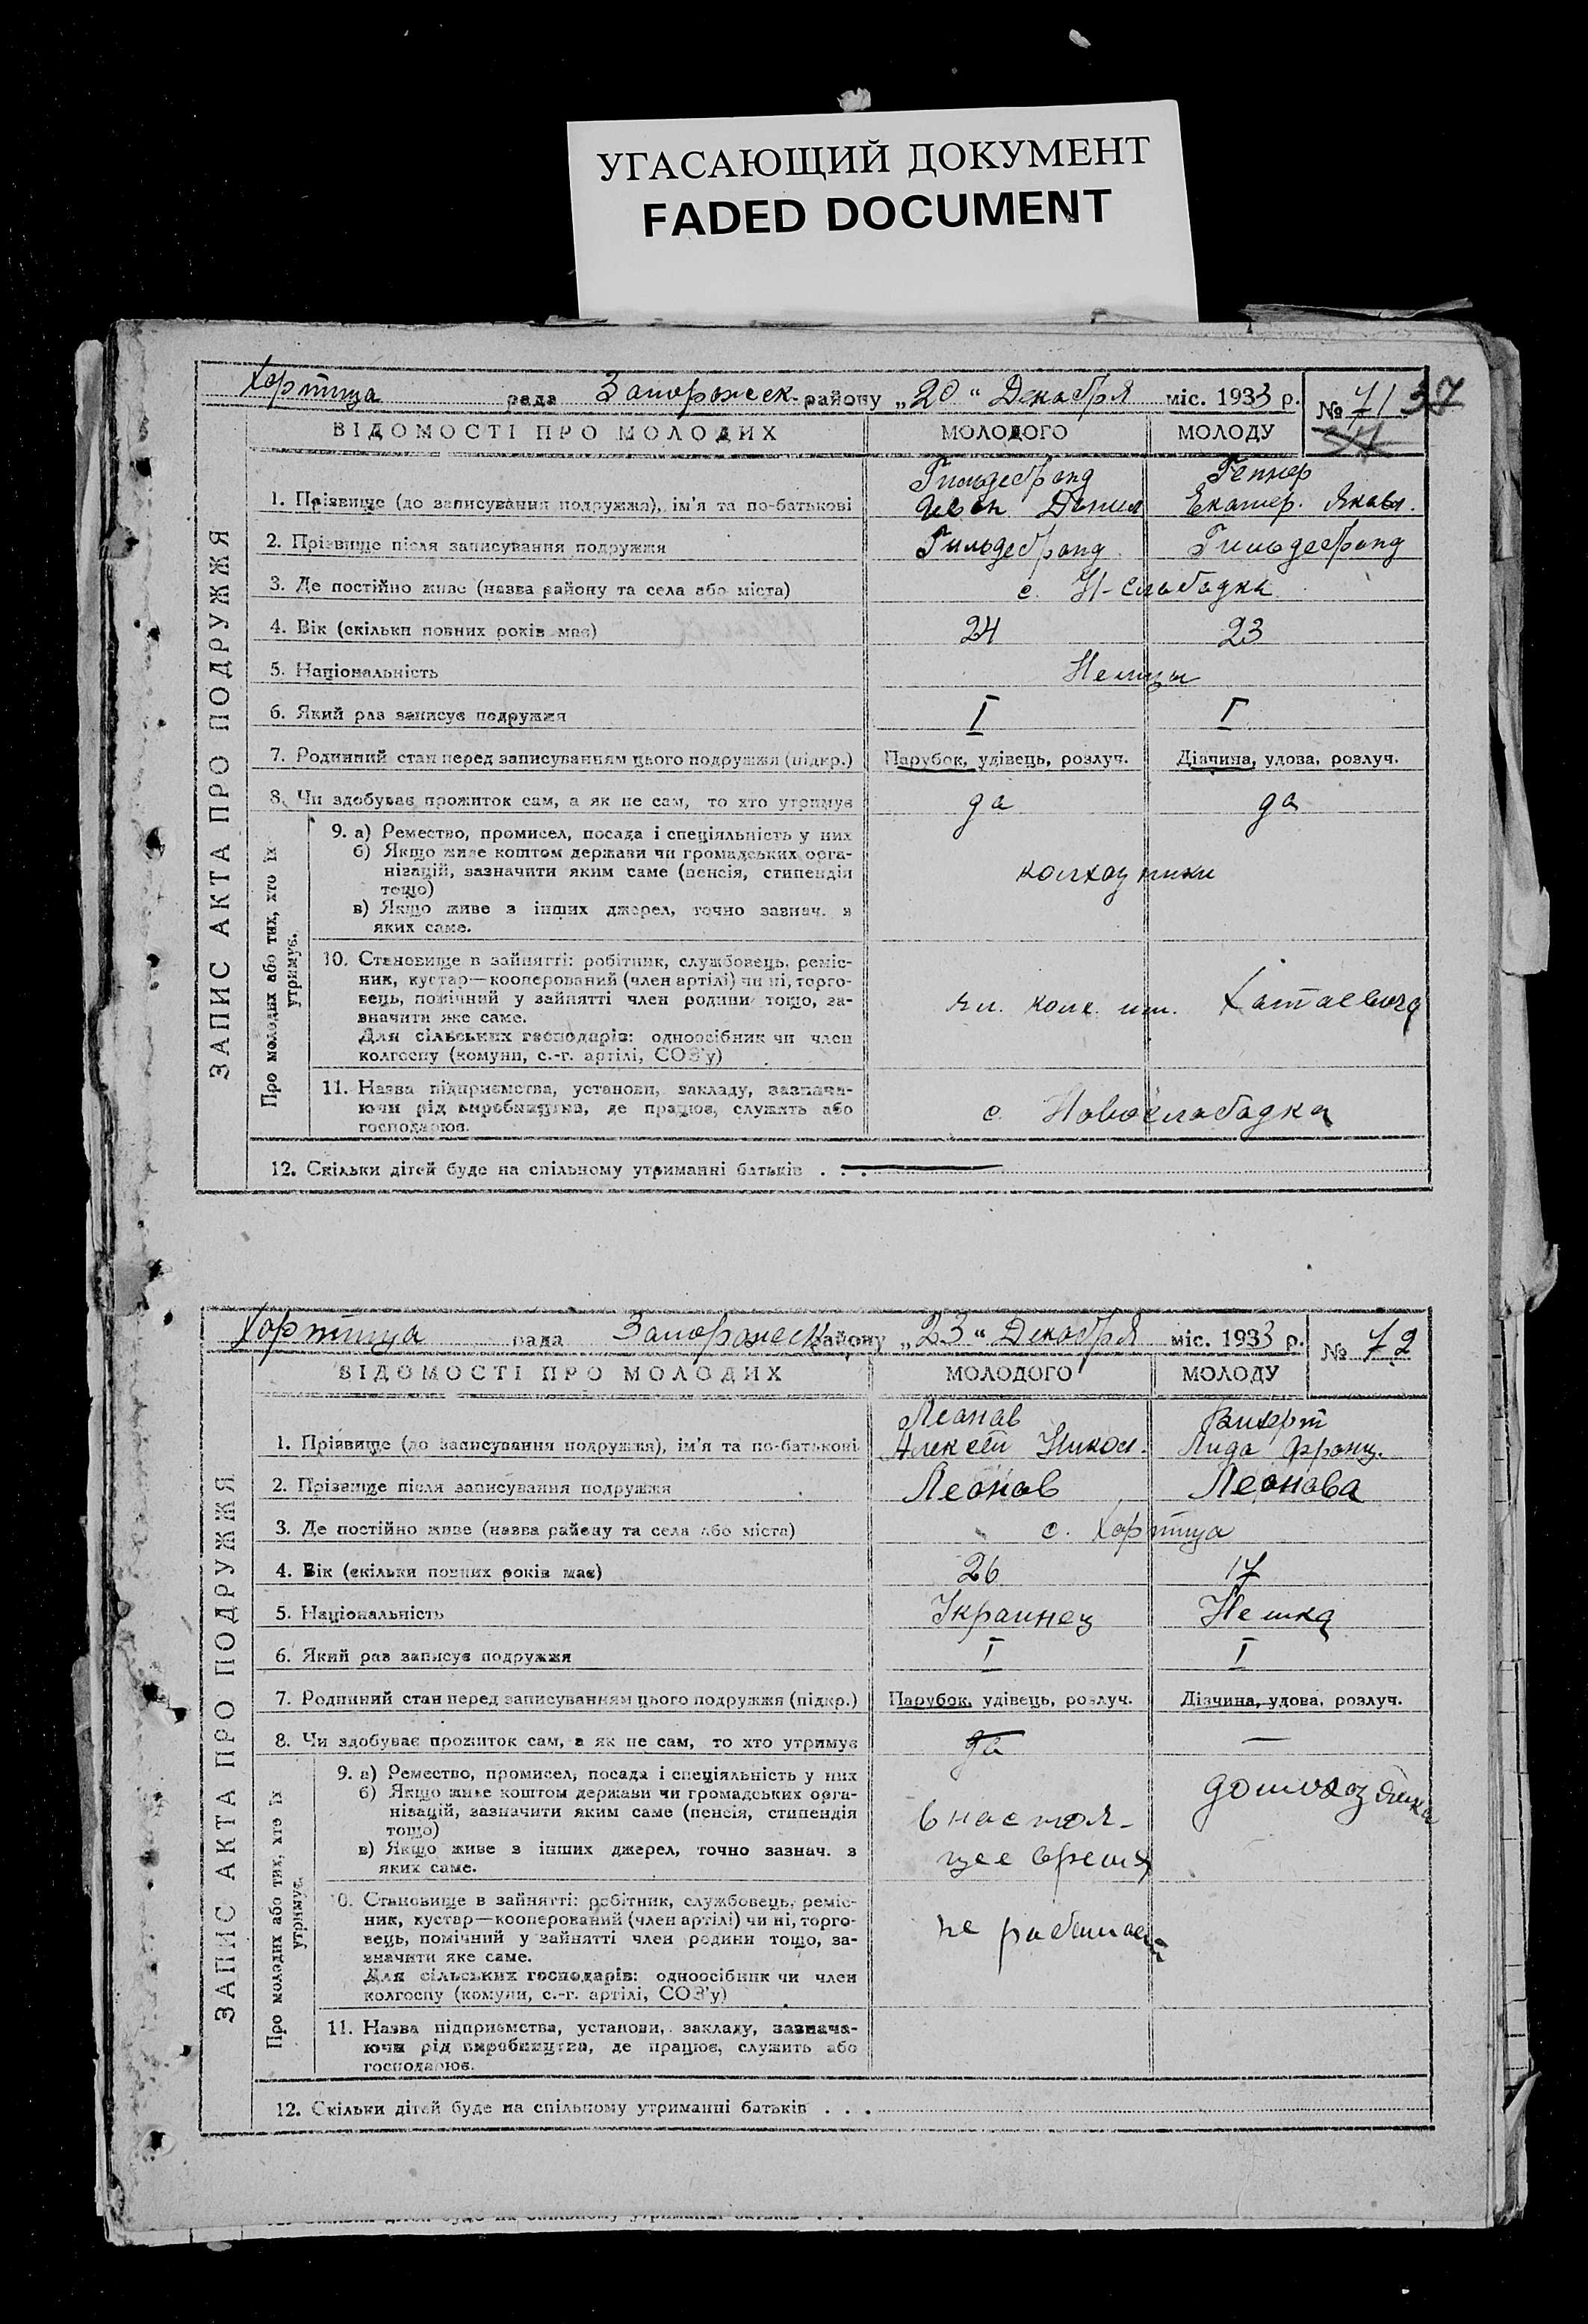 УГАСАЮЩИЙ ДОКУМЕНТ
FADED DOCUMENT
Хортица рада Запорожск. району „20“ Декабря міс. 1933 р. № 71 37
ВІДОМОСТІ ПРО МОЛОДИХ МОЛОДОГО МОЛОДУ
ЗАПИС АКТА ПРО ПОДРУЖЖЯ
Гильдебранд Геппер
1. Прізвище (до записування подружжя), ім'я та по-батькові Иван Данил Екатер. Яковл.
2. Прізвище після записування подружжя Гильдебранд Гильдебранд
3. Де постійно живе (назва району та села або міста) с. Н-Слободка
4. Вік (скільки повних років має) 24 23
5. Національність Немцы
6. Який раз записує подружжя I I
7. Родинний стан перед записуванням цього подружжя (підкр.) Парубок, удівець, розлуч. Дівчина, удова, розлуч.
8. Чи здобуває прожиток сам, а як не сам, то хто утримує да да
Про молодих або тих, хто їх утримує.
9. а) Ремество, промисел, посада і спеціяльність у них
б) Якщо живе коштом держави чи громадських орга-
нізацій, зазначити яким саме (пенсія, стипендія
тощо) колхозники
в) Якщо живе з інших джерел, точно зазнач. з
яких саме.
10. Становище в зайнятті: робітник, службовець, реміс-
ник, кустар—кооперований (член артілі) чи ні, торго-
вець, помічний у зайнятті член родини тощо, за-
значити яке саме. чл. колх. им. Хатаевича
Для сільських господарів: одноосібник чи член
колгоспу (комуни, с.-г. артілі, СОЗ'у)
11. Назва підприємства, установи, закладу, зазнача-
ючи рід виробництва, де працює, служить або
господарює. с. Новослободка
12. Скільки дітей буде на спільному утриманні батьків . . .
Хортица рада Запорожск. району „23“ Декабря міс. 1933 р. № 72
ВІДОМОСТІ ПРО МОЛОДИХ МОЛОДОГО МОЛОДУ
ЗАПИС АКТА ПРО ПОДРУЖЖЯ
Леонов Вихерт
1. Прізвище (до записування подружжя), ім'я та по-батькові Алексей Никол. Лида Франц.
2. Прізвище після записування подружжя Леонов Леонова
3. Де постійно живе (назва району та села або міста) с. Хортица
4. Вік (скільки повних років має) 26 17
5. Національність Украинец Немка
6. Який раз записує подружжя I I
7. Родинний стан перед записуванням цього подружжя (підкр.) Парубок, удівець, розлуч. Дівчина, удова, розлуч.
8. Чи здобуває прожиток сам, а як не сам, то хто утримує да —
Про молодих або тих, хто їх утримує.
9. а) Ремество, промисел, посада і спеціяльність у них
б) Якщо живе коштом держави чи громадських орга- домохозяйка
нізацій, зазначити яким саме (пенсія, стипендія
тощо) в настоя-
в) Якщо живе з інших джерел, точно зазнач. з
яких саме. щее время
10. Становище в зайнятті: робітник, службовець, реміс-
ник, кустар—кооперований (член артілі) чи ні, торго-
вець, помічний у зайнятті член родини тощо, за- не работает
значити яке саме.
Для сільських господарів: одноосібник чи член
колгоспу (комуни, с.-г. артілі, СОЗ'у)
11. Назва підприємства, установи, закладу, зазнача-
ючи рід виробництва, де працює, служить або
господарює.
12. Скільки дітей буде на спільному утриманні батьків . . .